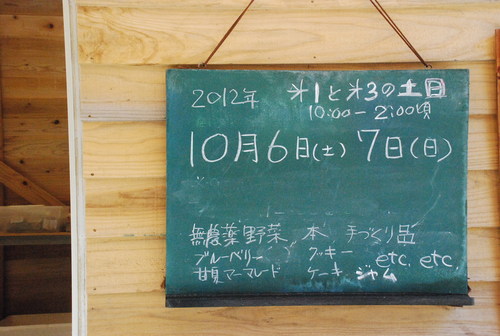 2012年 㐧1と㐧3の土日
10:00-2:00頃
10月6日(土) 7日(日)
無農薬野菜 本 手づくり品
ブルーベリー クッキー etc. etc.
甘夏マーマレード ケーキ ジャム